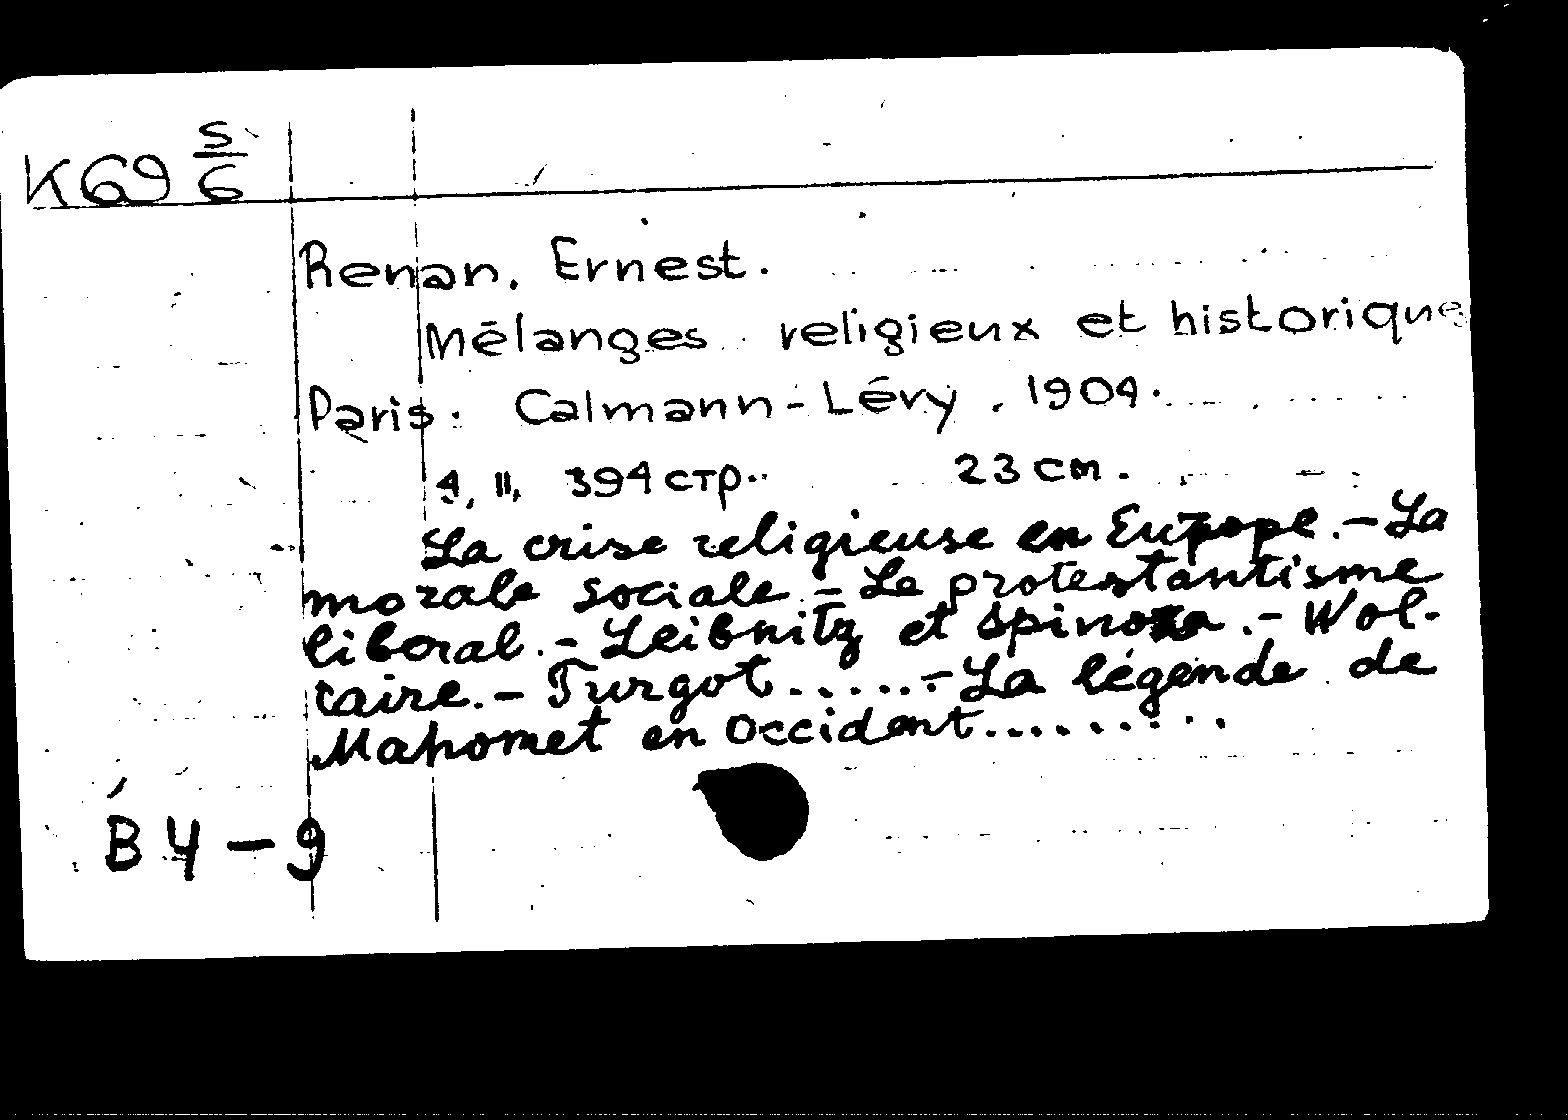 K69 5/6
Renan, Ernest.
Mélanges religieux et historique
Paris: Calmann-Lévy, 1904.
4, II, 394 стр. 23 cm.
La crise religieuse en Europe. - La
morale sociale. - Le protestantisme
liberal. - Leibnitz et Spinoza. - Wol-
taire. - Turgot...... - La légende de
Mahomet en Occident.........
B 4 - 9